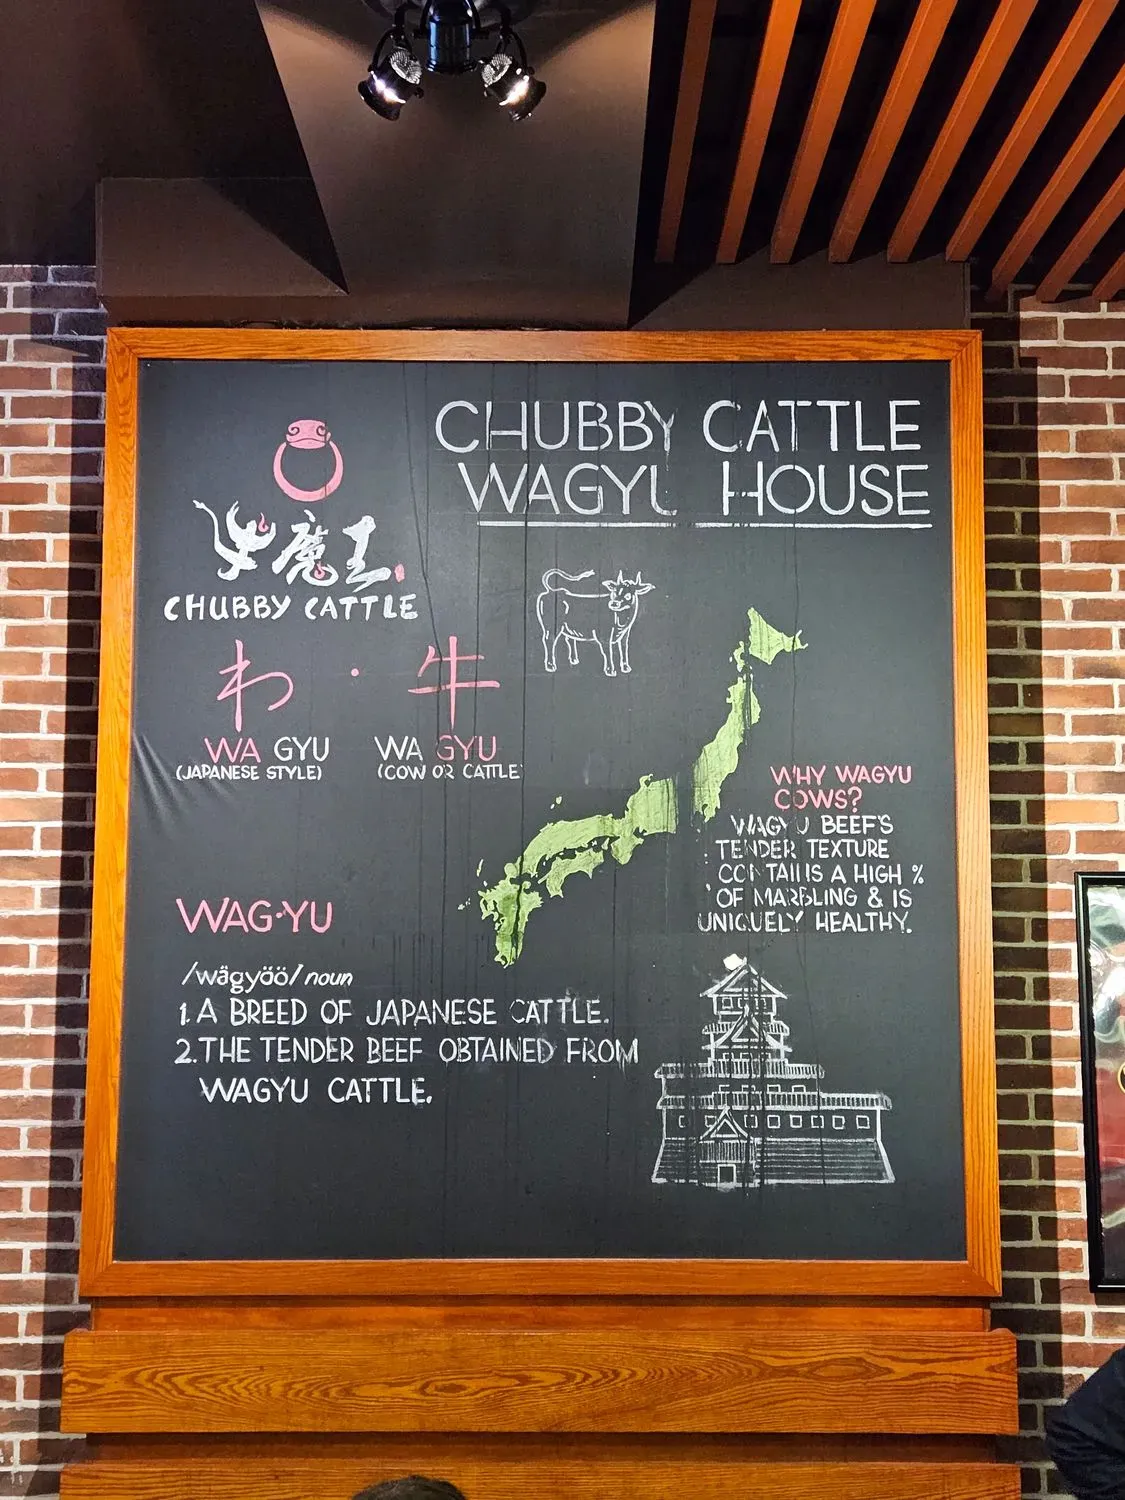 CHUBBY CATTLE
WAGYU HOUSE
牛魔王
CHUBBY CATTLE
わ・牛
WA GYU
(JAPANESE STYLE)
WA GYU
(COW OR CATTLE)
WHY WAGYU
COWS?
WAGYU BEEF'S
TENDER TEXTURE
CONTAINS A HIGH %
OF MARBLING & IS
UNIQUELY HEALTHY.
WAG·YU
/wägyöö/ noun
1. A BREED OF JAPANESE CATTLE.
2. THE TENDER BEEF OBTAINED FROM
WAGYU CATTLE.